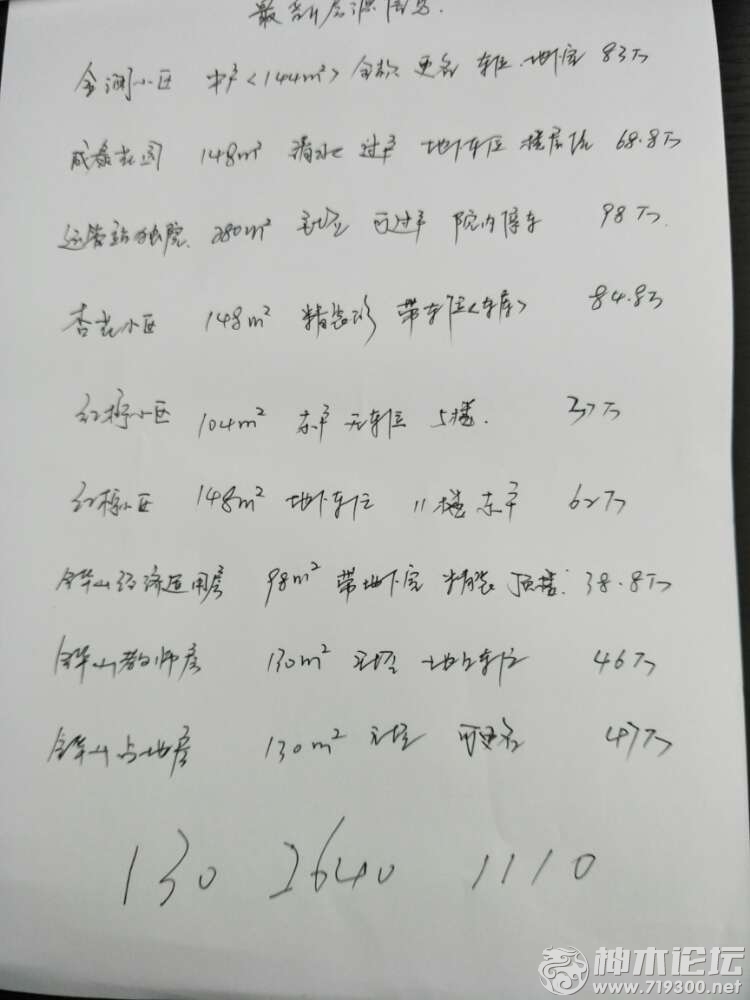 最新房源信息.
金润小区 中户<144m²> 全款 更名 车位.地下室 83万
成泰花园 148m² 清水 过户 地下车位 楼层低 68.8万
运管站独院. 280m² 毛坯 可过户 院内停车 98万.
杏花小区 148m² 精装修 带车位<车库> 84.8万
红柠小区 104m² 东户 无车位 5楼. 37万
红柠小区 148m² 地下车位 11楼 东户 62万
铧山经济适用房 98m² 带地下室 精装 顶楼. 38.8万
铧山教师房 130m² 毛坯 地上车位 46万
铧山占地房 130m² 毛坯 可更名 47万
130 2640 1110
神木论坛
www.719300.net